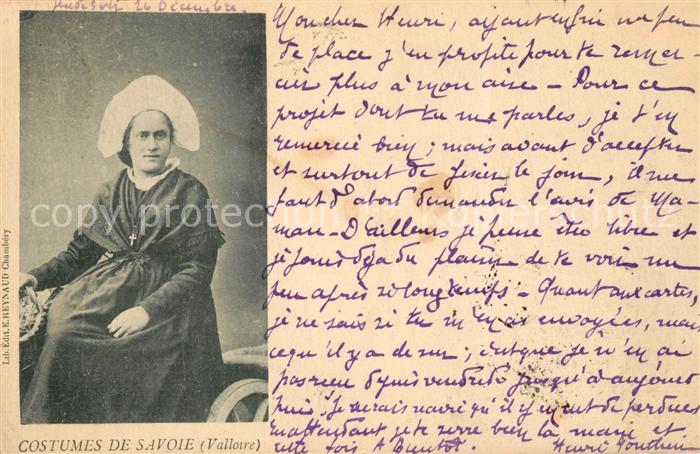 Jeudi soir 26 Décembre.
Mon cher Henri, ayant enfin un peu
de place j'en profite pour te remer-
cier plus à mon aise - Pour ce
projet dont tu me parles, je t'en
remercie bien; mais avant d'accepter
et surtout de fixer le jour, il me
faut d'abord demander l'avis de Ma-
man - D'ailleurs je pense être libre et
je jouis déjà du plaisir de te voir un
peu après si longtemps - Quant aux cartes,
je ne sais si tu m'en as envoyées, mais
ce qu'il y a de sûr, c'est que je n'en ai
pas reçu depuis vendredi jusqu'à aujourd'
hui. Je serais navré qu'il y en eut de perdues
En attendant je te serre bien la main et
cette fois A Bientôt. Henri
Lib. Edit. E. REYNAUD Chambéry
COSTUMES DE SAVOIE (Valloire)
copy protection